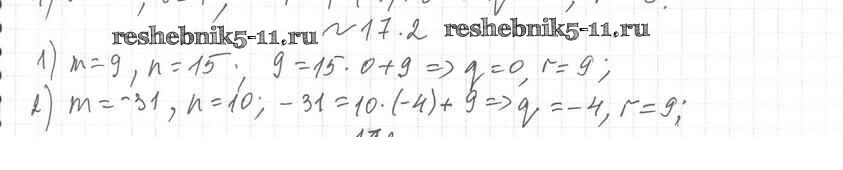 reshebnik5-11.ru ~ 17.2 reshebnik5-11.ru
1) m = 9, n = 15; 9 = 15 · 0 + 9 => q = 0, r = 9;
2) m = -31, n = 10; -31 = 10 · (-4) + 9 => q = -4, r = 9;